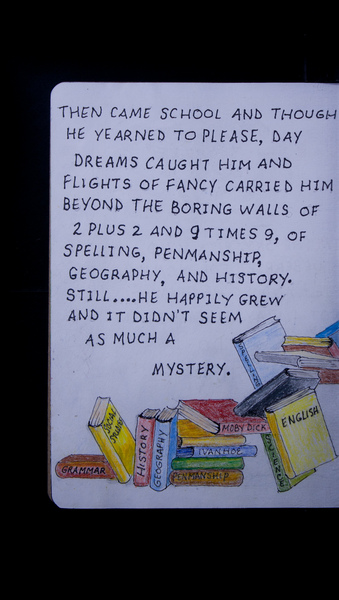 THEN CAME SCHOOL AND THOUGH
HE YEARNED TO PLEASE, DAY
DREAMS CAUGHT HIM AND
FLIGHTS OF FANCY CARRIED HIM
BEYOND THE BORING WALLS OF
2 PLUS 2 AND 9 TIMES 9, OF
SPELLING, PENMANSHIP,
GEOGRAPHY, AND HISTORY.
STILL....HE HAPPILY GREW
AND IT DIDN'T SEEM
AS MUCH A
MYSTERY.
SPELLING
ENGLISH
SOCIAL
STUDIES
HISTORY
GEOGRAPHY
MOBY DICK
IVANHOE
SCIENCE
GRAMMAR
PENMANSHIP